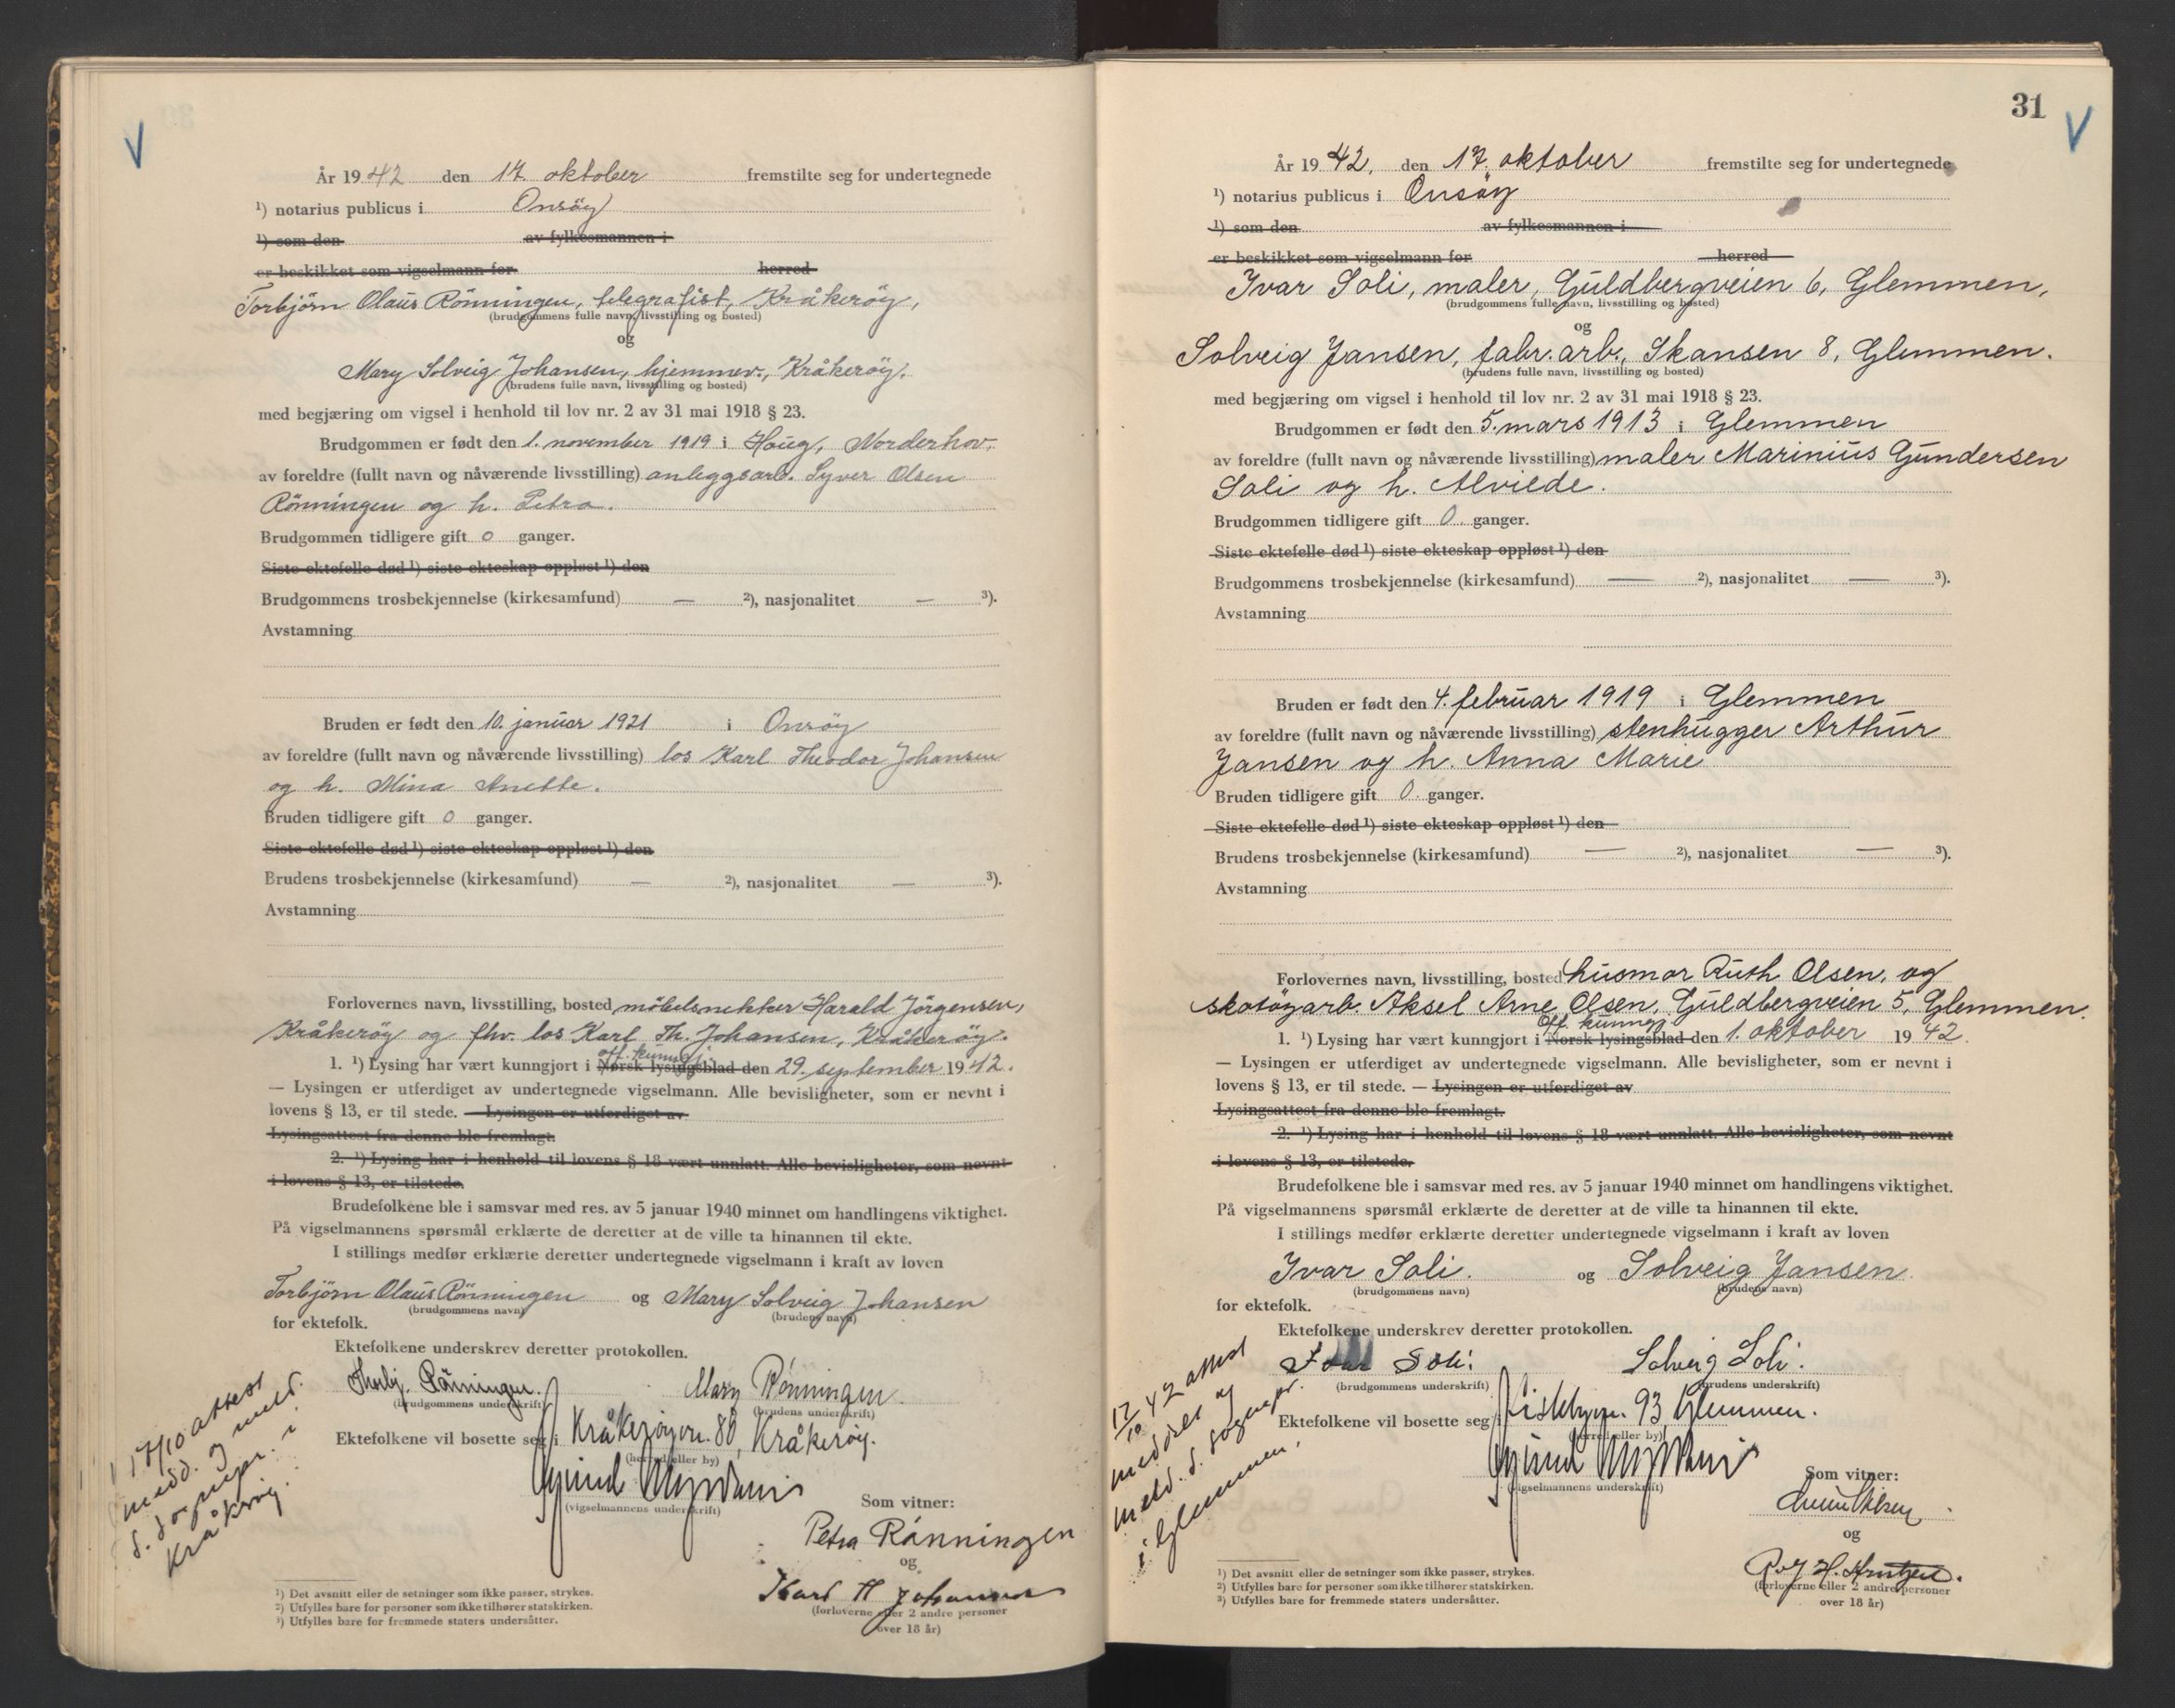 År 1942 den 17. oktober fremstilte seg for undertegnede
¹) notarius publicus i Onsöy
¹) som den av fylkesmannen i
er beskikket som vigselmann for herred
Torbjörn Olaus Rönningen, telegrafist, Kråkeröy,
(brudgommens fulle navn, livsstilling og bosted)
og
Mary Solveig Johansen, hjemmev., Kråkeröy.
(brudens fulle navn, livsstilling og bosted)
med begjæring om vigsel i henhold til lov nr. 2 av 31 mai 1918 § 23.
Brudgommen er født den 1. november 1919 i Houg, Norderhov.
av foreldre (fullt navn og nåværende livsstilling) anleggsarb. Syver Olsen
Rönningen og h. Petra.
Brudgommen tidligere gift 0 ganger.
Siste ektefelle død ¹) siste ekteskap oppløst ¹) den
Brudgommens trosbekjennelse (kirkesamfund) — ²), nasjonalitet — ³).
Avstamning
Bruden er født den 10. januar 1921 i Onsöy
av foreldre (fullt navn og nåværende livsstilling) los Karl Theodor Johansen
og h. Mina Anette.
Bruden tidligere gift 0 ganger.
Siste ektefelle død ¹) siste ekteskap oppløst ¹) den
Brudens trosbekjennelse (kirkesamfund) — ²), nasjonalitet — ³).
Avstamning
Forlovernes navn, livsstilling, bosted möbelsnekker Harald Jörgensen,
Kråkeröy og fhv. los Karl Th. Johansen, Kråkeröy.
off. kunngj.
1. ¹) Lysing har vært kunngjort i Norsk lysingsblad den 29. september 1942.
— Lysingen er utferdiget av undertegnede vigselmann. Alle bevisligheter, som er nevnt i
lovens § 13, er til stede. — Lysingen er utferdiget av
Lysingsattest fra denne ble fremlagt.
2. ¹) Lysing har i henhold til lovens § 18 vært unnlatt. Alle bevisligheter, som nevnt
i lovens § 13, er tilstede.
Brudefolkene ble i samsvar med res. av 5 januar 1940 minnet om handlingens viktighet.
På vigselmannens spørsmål erklærte de deretter at de ville ta hinannen til ekte.
I stillings medfør erklærte deretter undertegnede vigselmann i kraft av loven
Torbjörn Olaus Rönningen og Mary Solveig Johansen
(brudgommens navn) (brudens navn)
for ektefolk.
Ektefolkene underskrev deretter protokollen.
Thorbj. Rönningen. Mary Rönningen.
(brudgommens underskrift) (brudens underskrift)
Ektefolkene vil bosette seg i Kråkeröyvn. 80, Kråkeröy.
(herred eller by)
(vigselmannens underskrift)
Som vitner:
Petra Rönningen
og
Karl Th Johansen
(forloverne eller 2 andre personer
over 18 år)
17/10 attest
medd. og meld.
s. sognepr. i
Kråkeröy.
¹) Det avsnitt eller de setninger som ikke passer, strykes.
²) Utfylles bare for personer som ikke tilhører statskirken.
³) Utfylles bare for fremmede staters undersåtter.
31
År 1942, den 17. oktober fremstilte seg for undertegnede
¹) notarius publicus i Onsöy
¹) som den av fylkesmannen i
er beskikket som vigselmann for herred
Ivar Soli, maler, Guldbergveien 6, Glemmen,
(brudgommens fulle navn, livsstilling og bosted)
og
Solveig Jansen, fabr.arb., Skansen 8, Glemmen.
(brudens fulle navn, livsstilling og bosted)
med begjæring om vigsel i henhold til lov nr. 2 av 31 mai 1918 § 23.
Brudgommen er født den 5. mars 1913 i Glemmen
av foreldre (fullt navn og nåværende livsstilling) maler Marinius Gundersen
Soli og h. Alvilde.
Brudgommen tidligere gift 0 ganger.
Siste ektefelle død ¹) siste ekteskap oppløst ¹) den
Brudgommens trosbekjennelse (kirkesamfund) — ²), nasjonalitet — ³).
Avstamning
Bruden er født den 4. februar 1919 i Glemmen
av foreldre (fullt navn og nåværende livsstilling) stenhugger Arthur
Jansen og h. Anna Marie
Bruden tidligere gift 0 ganger.
Siste ektefelle død ¹) siste ekteskap oppløst ¹) den
Brudens trosbekjennelse (kirkesamfund) — ²), nasjonalitet — ³).
Avstamning
Forlovernes navn, livsstilling, bosted husmor Ruth Olsen, og
skotöyarb. Aksel Arne Olsen, Guldbergveien 5, Glemmen.
off. kunngj
1. ¹) Lysing har vært kunngjort i Norsk lysingsblad den 1. oktober 1942.
— Lysingen er utferdiget av undertegnede vigselmann. Alle bevisligheter, som er nevnt i
lovens § 13, er til stede. — Lysingen er utferdiget av
Lysingsattest fra denne ble fremlagt.
2. ¹) Lysing har i henhold til lovens § 18 vært unnlatt. Alle bevisligheter, som nevnt
i lovens § 13, er tilstede.
Brudefolkene ble i samsvar med res. av 5 januar 1940 minnet om handlingens viktighet.
På vigselmannens spørsmål erklærte de deretter at de ville ta hinannen til ekte.
I stillings medfør erklærte deretter undertegnede vigselmann i kraft av loven
Ivar Soli. og Solveig Jansen.
(brudgommens navn) (brudens navn)
for ektefolk.
Ektefolkene underskrev deretter protokollen.
Ivar Soli Solveig Soli.
(brudgommens underskrift) (brudens underskrift)
Ektefolkene vil bosette seg i 93, Glemmen.
(herred eller by)
(vigselmannens underskrift)
Som vitner:
og
(forloverne eller 2 andre personer
over 18 år)
17/10 42 attest
meddelt og
meld. s. sognepr.
i Glemmen.
¹) Det avsnitt eller de setninger som ikke passer, strykes.
²) Utfylles bare for personer som ikke tilhører statskirken.
³) Utfylles bare for fremmede staters undersåtter.